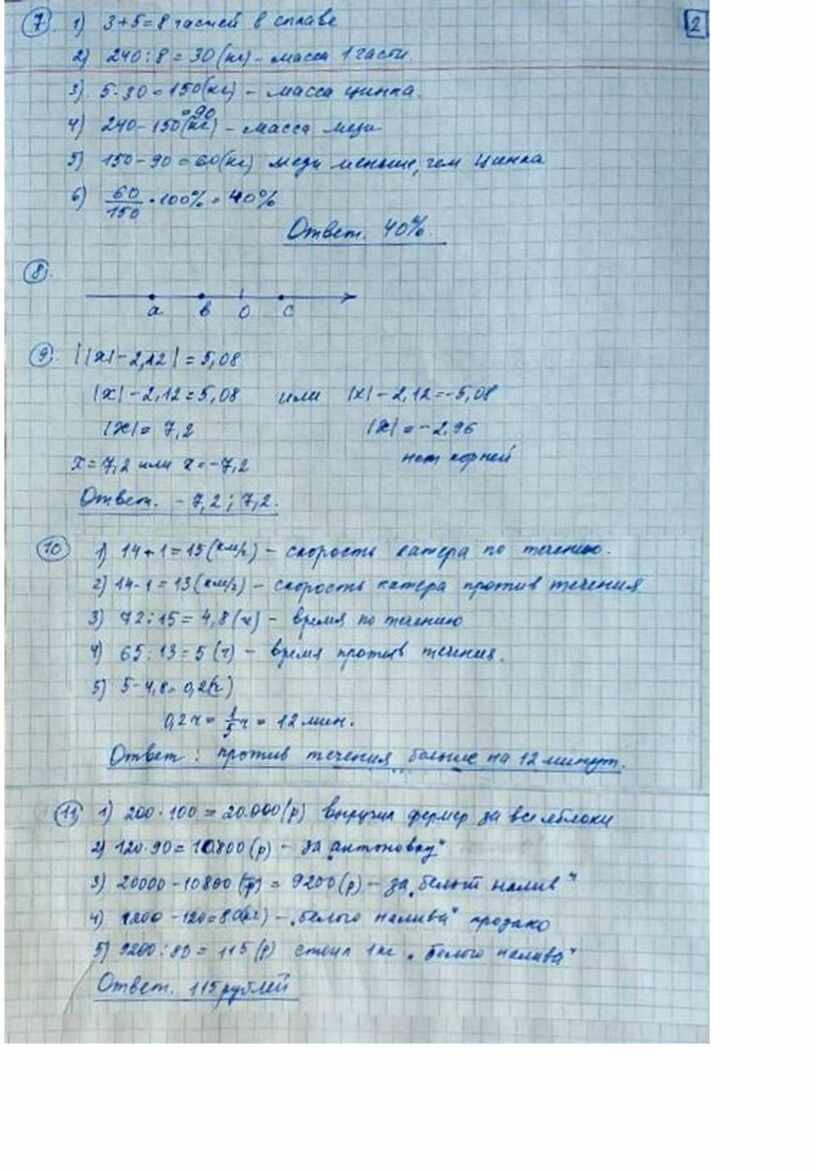 2
7 1) 3+5=8 частей в сплаве
2) 240:8=30(кг) – масса 1 части.
3) 5·30=150(кг) – масса цинка.
4) 240-150=90(кг) – масса меди
5) 150-90=60(кг) меди меньше, чем цинка
6) 60/150 · 100% = 40%
Ответ. 40%.
8.
a b 0 c
9. ||x|-2,12|=5,08
|x|-2,12=5,08 или |x|-2,12=-5,08
|x|=7,2 |x|=-2,96
x=7,2 или x=-7,2 нет корней
Ответ. -7,2; 7,2.
10 1) 14+1=15(км/ч) – скорость катера по течению.
2) 14-1=13(км/ч) – скорость катера против течения
3) 72:15=4,8(ч) – время по течению
4) 65:13=5(ч) – время против течения.
5) 5-4,8=0,2(ч)
0,2ч=1/5ч=12мин.
Ответ: против течения больше на 12 минут.
11 1) 200·100=20.000(р) выручил фермер за все яблоки
2) 120·90=10800(р) – за „антоновку"
3) 20000-10800(р)=9200(р) – за „белый налив"
4) 200-120=80(кг) – „белого налива" продано
5) 9200:80=115(р) стоил 1кг „белого налива"
Ответ. 115 рублей